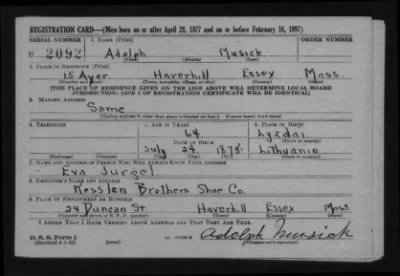 REGISTRATION CARD—(Men born on or after April 28, 1877 and on or before February 16, 1897)
SERIAL NUMBER 1. NAME (Print) ORDER NUMBER
U 2092 Adolph Musick
(First) (Middle) (Last)
2. PLACE OF RESIDENCE (Print)
15 Ayer Haverhill Essex Mass.
(Number and street) (Town, township, village, or city) (County) (State)
[THE PLACE OF RESIDENCE GIVEN ON THE LINE ABOVE WILL DETERMINE LOCAL BOARD
JURISDICTION; LINE 2 OF REGISTRATION CERTIFICATE WILL BE IDENTICAL]
3. MAILING ADDRESS
Same
[Mailing address if other than place indicated on line 2. If same insert word same]
4. TELEPHONE 5. AGE IN YEARS 6. PLACE OF BIRTH
64 Lyzdai
DATE OF BIRTH (Town or county)
July 24 1878 Lithuania
(Exchange) (Number) (Mo.) (Day) (Yr.) (State or country)
7. NAME AND ADDRESS OF PERSON WHO WILL ALWAYS KNOW YOUR ADDRESS
Eva Jurgel
8. EMPLOYER'S NAME AND ADDRESS
Kesslen Brothers Shoe Co.
9. PLACE OF EMPLOYMENT OR BUSINESS
24 Duncan St. Haverhill Essex Mass
(Number and street or R. F. D. number) (Town) (County) (State)
I AFFIRM THAT I HAVE VERIFIED ABOVE ANSWERS AND THAT THEY ARE TRUE.
D. S. S. Form 1
(Revised 4-1-42) Adolph Musick
(Registrant's signature)